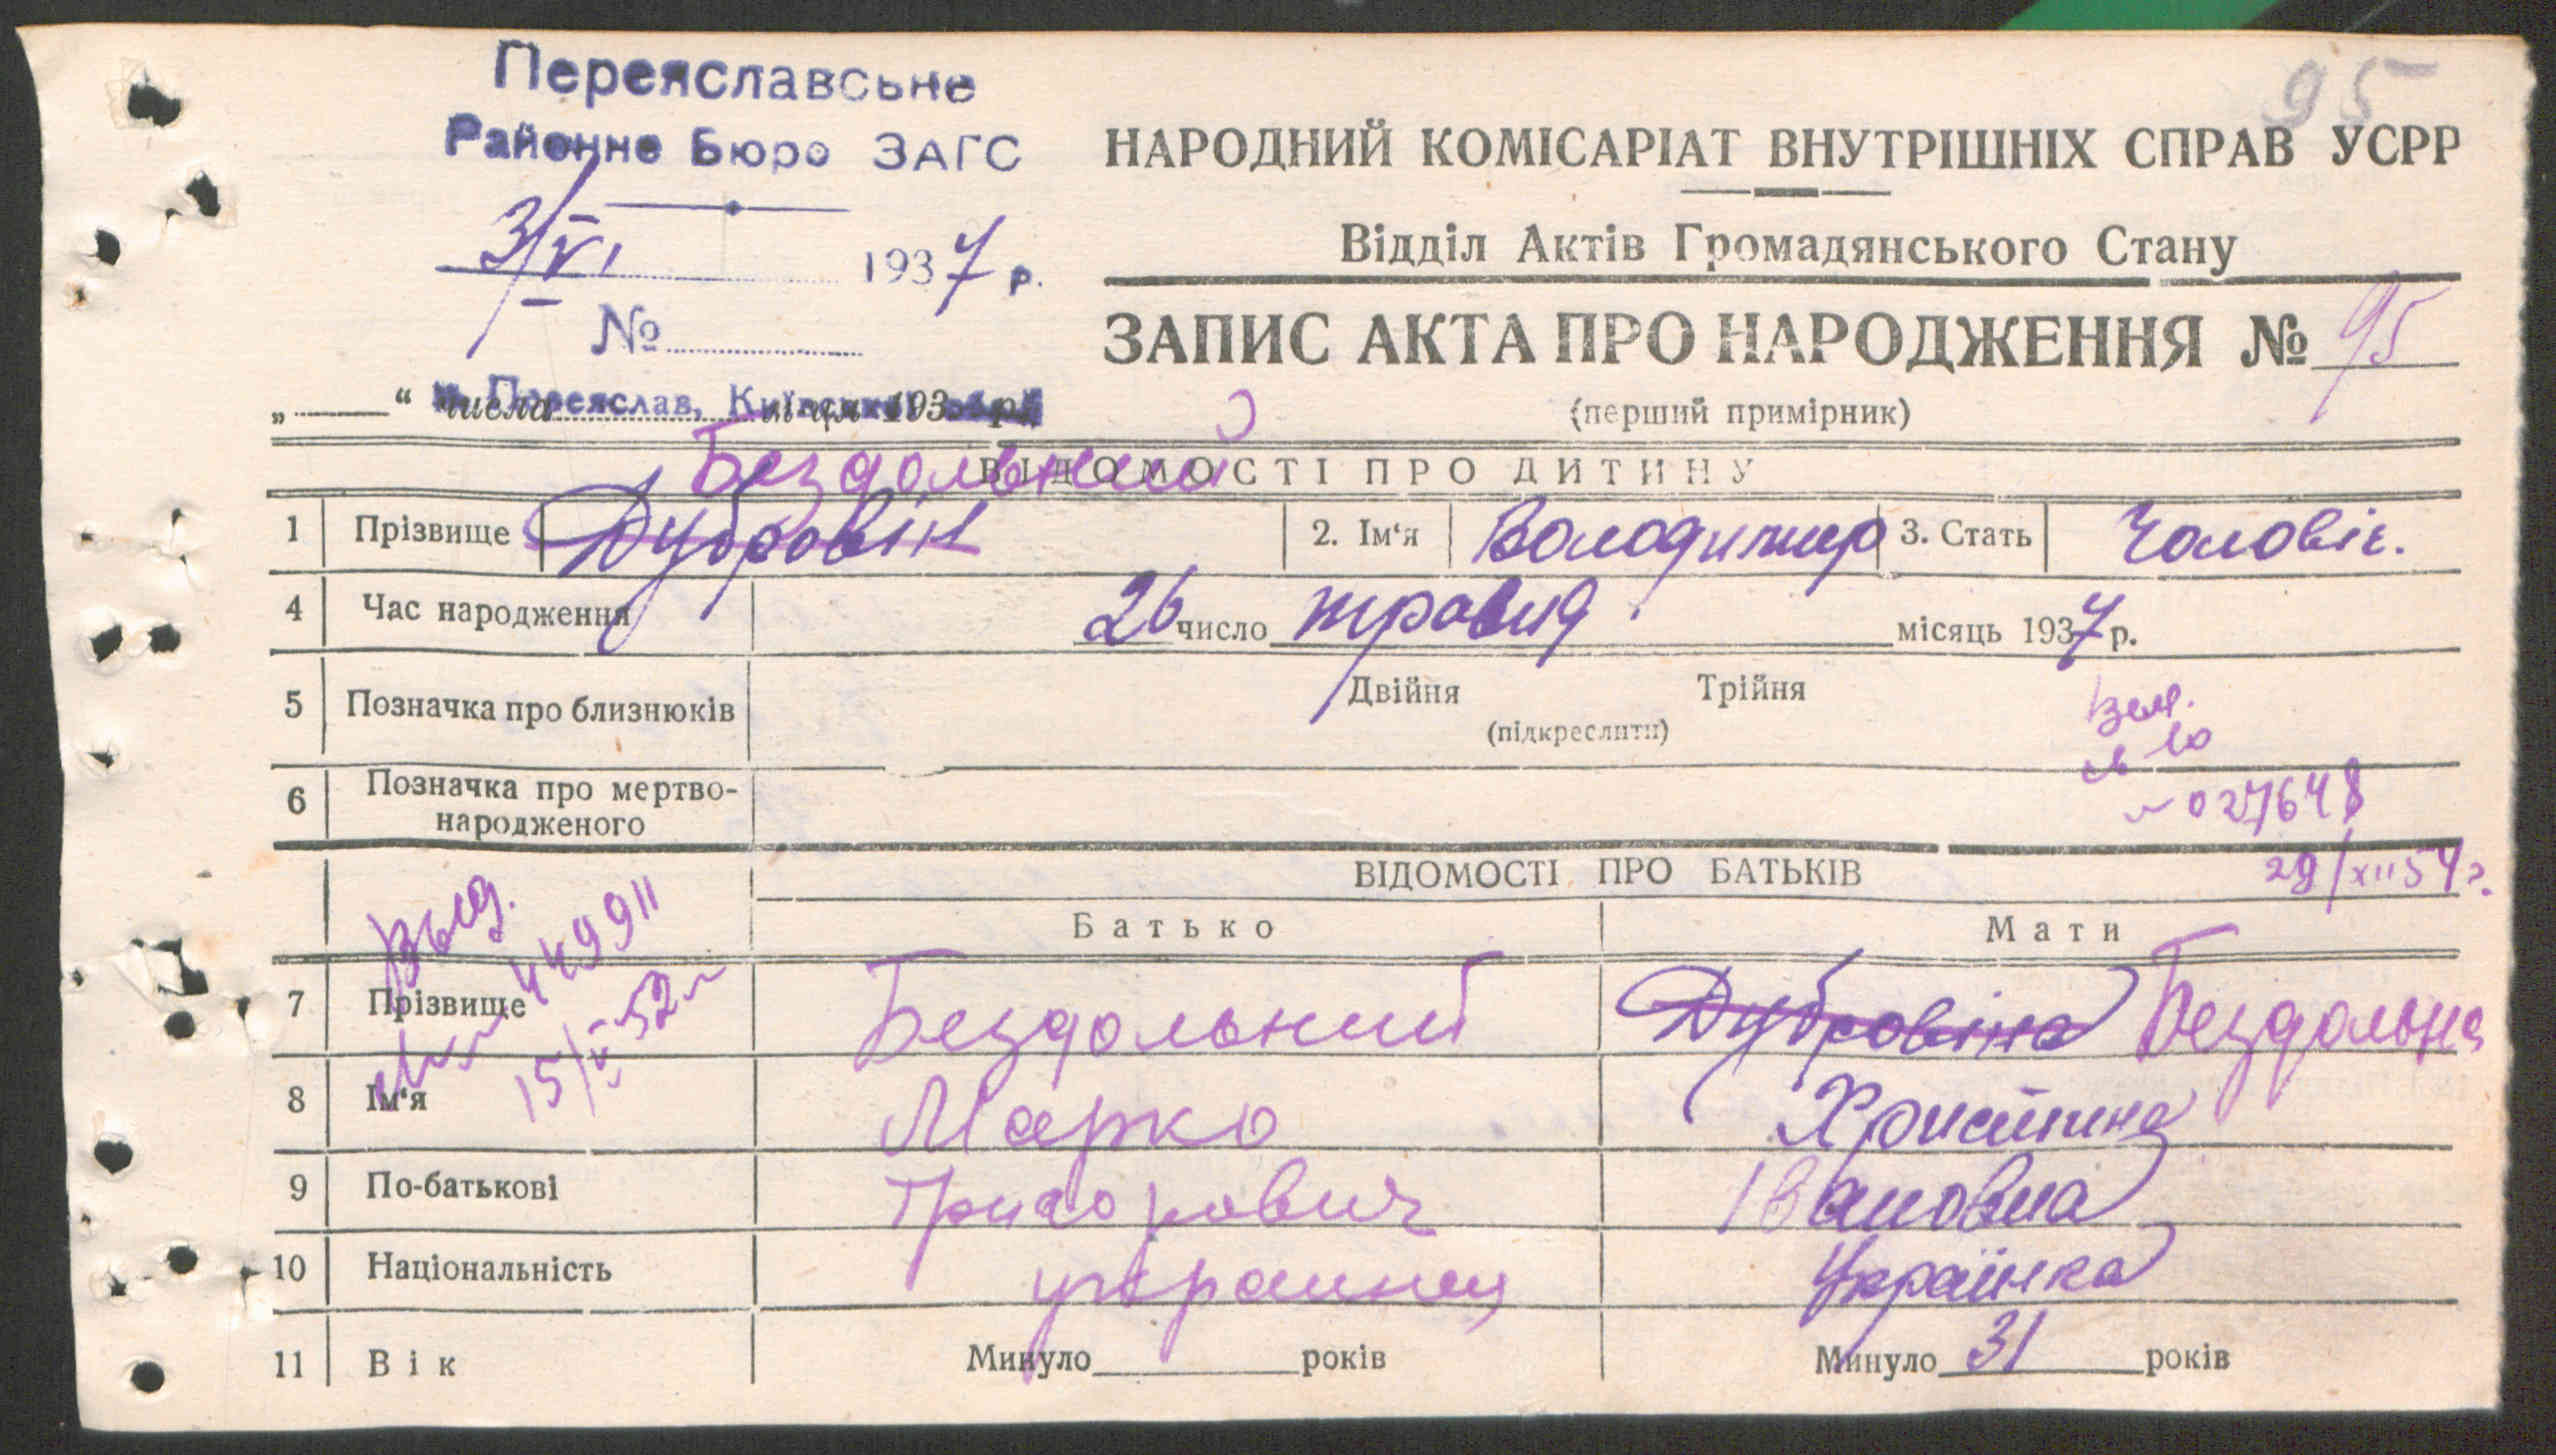 95
Переяславське
Районне Бюро ЗАГС
3/VI 1937 р.
№
м. Переяслав, Київської обл.
„ “ числа місяця 193 р.
НАРОДНИЙ КОМІСАРІАТ ВНУТРІШНІХ СПРАВ УСРР
Відділ Актів Громадянського Стану
ЗАПИС АКТА ПРО НАРОДЖЕННЯ № 95
(перший примірник)
ВІДОМОСТІ ПРО ДИТИНУ
Бездольний
1 Прізвище Дубровін 2. Ім‘я Володимир 3. Стать Чоловіч.
4 Час народження 26 число травня місяць 1937 р.
5 Позначка про близнюків Двійня Трійня
(підкреслити)
6 Позначка про мертво-
народженого
027648
29/XII 54 г.
ВІДОМОСТІ ПРО БАТЬКІВ
Выд.
449911
15/V 52
Батько Мати
7 Прізвище Бездольний Дубровіна Бездольна
8 Ім‘я Марко Христина
9 По-батькові Григорович Івановна
10 Національність украинец Українка
11 Вік Минуло років Минуло 31 років